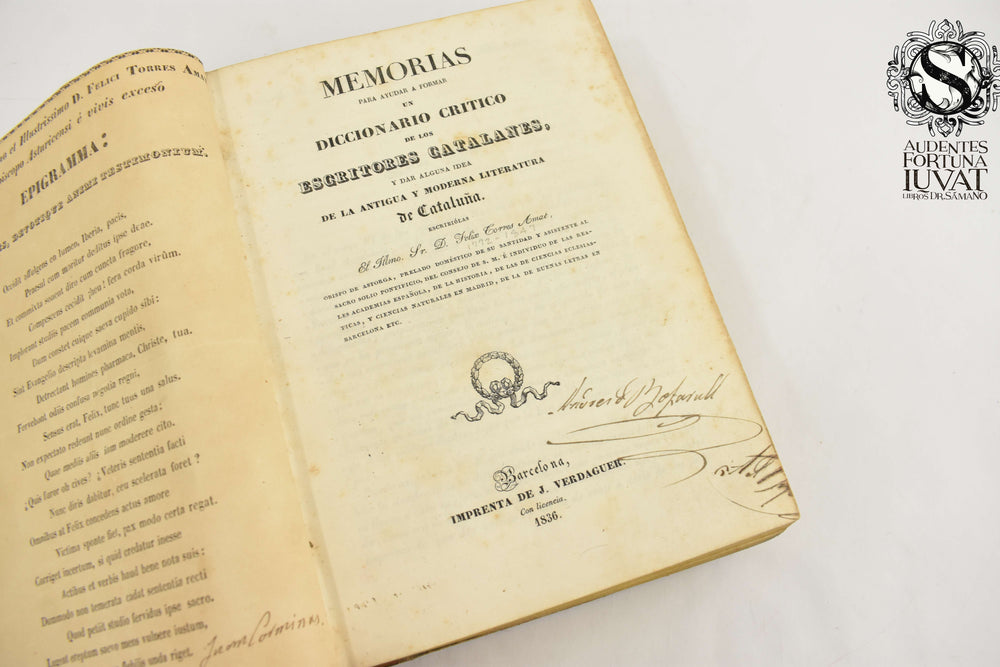 no et Illustrissimo D. Felici Torres Ama
piscopo Asturicensi é vivis excesó
EPIGRAMMA:
IS, DEVOTIQUE ANIMI TESTIMONIUM.
Occidit affulgens en lumen, Iberia, pacis,
Praesul cum moritur deditus ipse deae.
Et commixta souent diro cum cuncta fragore,
Compescens cecidit ¡heu! fera corda virûm.
Implorant studiis pacem communia vota,
Dum constet cuique saeva cupido sibi:
Sint Evangelio descripta levamina mentis,
Detrectant homines pharmaca, Christe, tua.
Fervebant odiis confusa negotia regni,
Sensus erat, Felix, tunc tuus una salus.
Non expectato redeunt nunc ordine gesta:
Quae mediis aliis iam moderere cito.
¿Quis furor ob cives? ¿Veteris sententia facti
Nunc diris dabitur, ceu scelerata foret?
Omnibus at Felix concedens actus amore
Victima sponte fiet, pax modo certa regat.
Corriget incertum, si quid credatur inesse
Actibus et verbis haud bene nota suis:
Dummodo non temerata cadat sententia recti
Quod petiit studio fervidus ipse sacro.
Luguet ereptum saevo mens vulnere iustum,
unda riget.
Juan Corminas.
MEMORIAS
PARA AYUDAR A FORMAR
UN
DICCIONARIO CRITICO
DE LOS
ESCRITORES CATALANES,
Y DAR ALGUNA IDEA
DE LA ANTIGUA Y MODERNA LITERATURA
de Cataluña.
ESCRIBIÓLAS
El Illmo. Sr. D. Felix Torres Amat,
1772-1847
OBISPO DE ASTORGA, PRELADO DOMÉSTICO DE SU SANTIDAD Y ASISTENTE AL
SACRO SOLIO PONTIFICIO, DEL CONSEJO DE S. M. É INDIVIDUO DE LAS REA-
LES ACADEMIAS ESPAÑOLA, DE LA HISTORIA, DE LAS DE CIENCIAS ECLESIAS-
TICAS, Y CIENCIAS NATURALES EN MADRID, DE LA DE BUENAS LETRAS EN
BARCELONA ETC.
Andres d Bofarull
Barcelona,
IMPRENTA DE J. VERDAGUER.
Con licencia.
1836.
S
AUDENTES
FORTUNA
IUVAT
LIBROS DR. SÁMANO